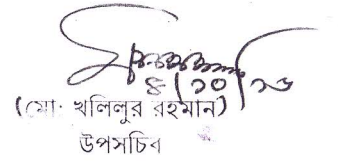 ৪/১০/১৬
(মো: খলিলুর রহমান)
উপসচিব